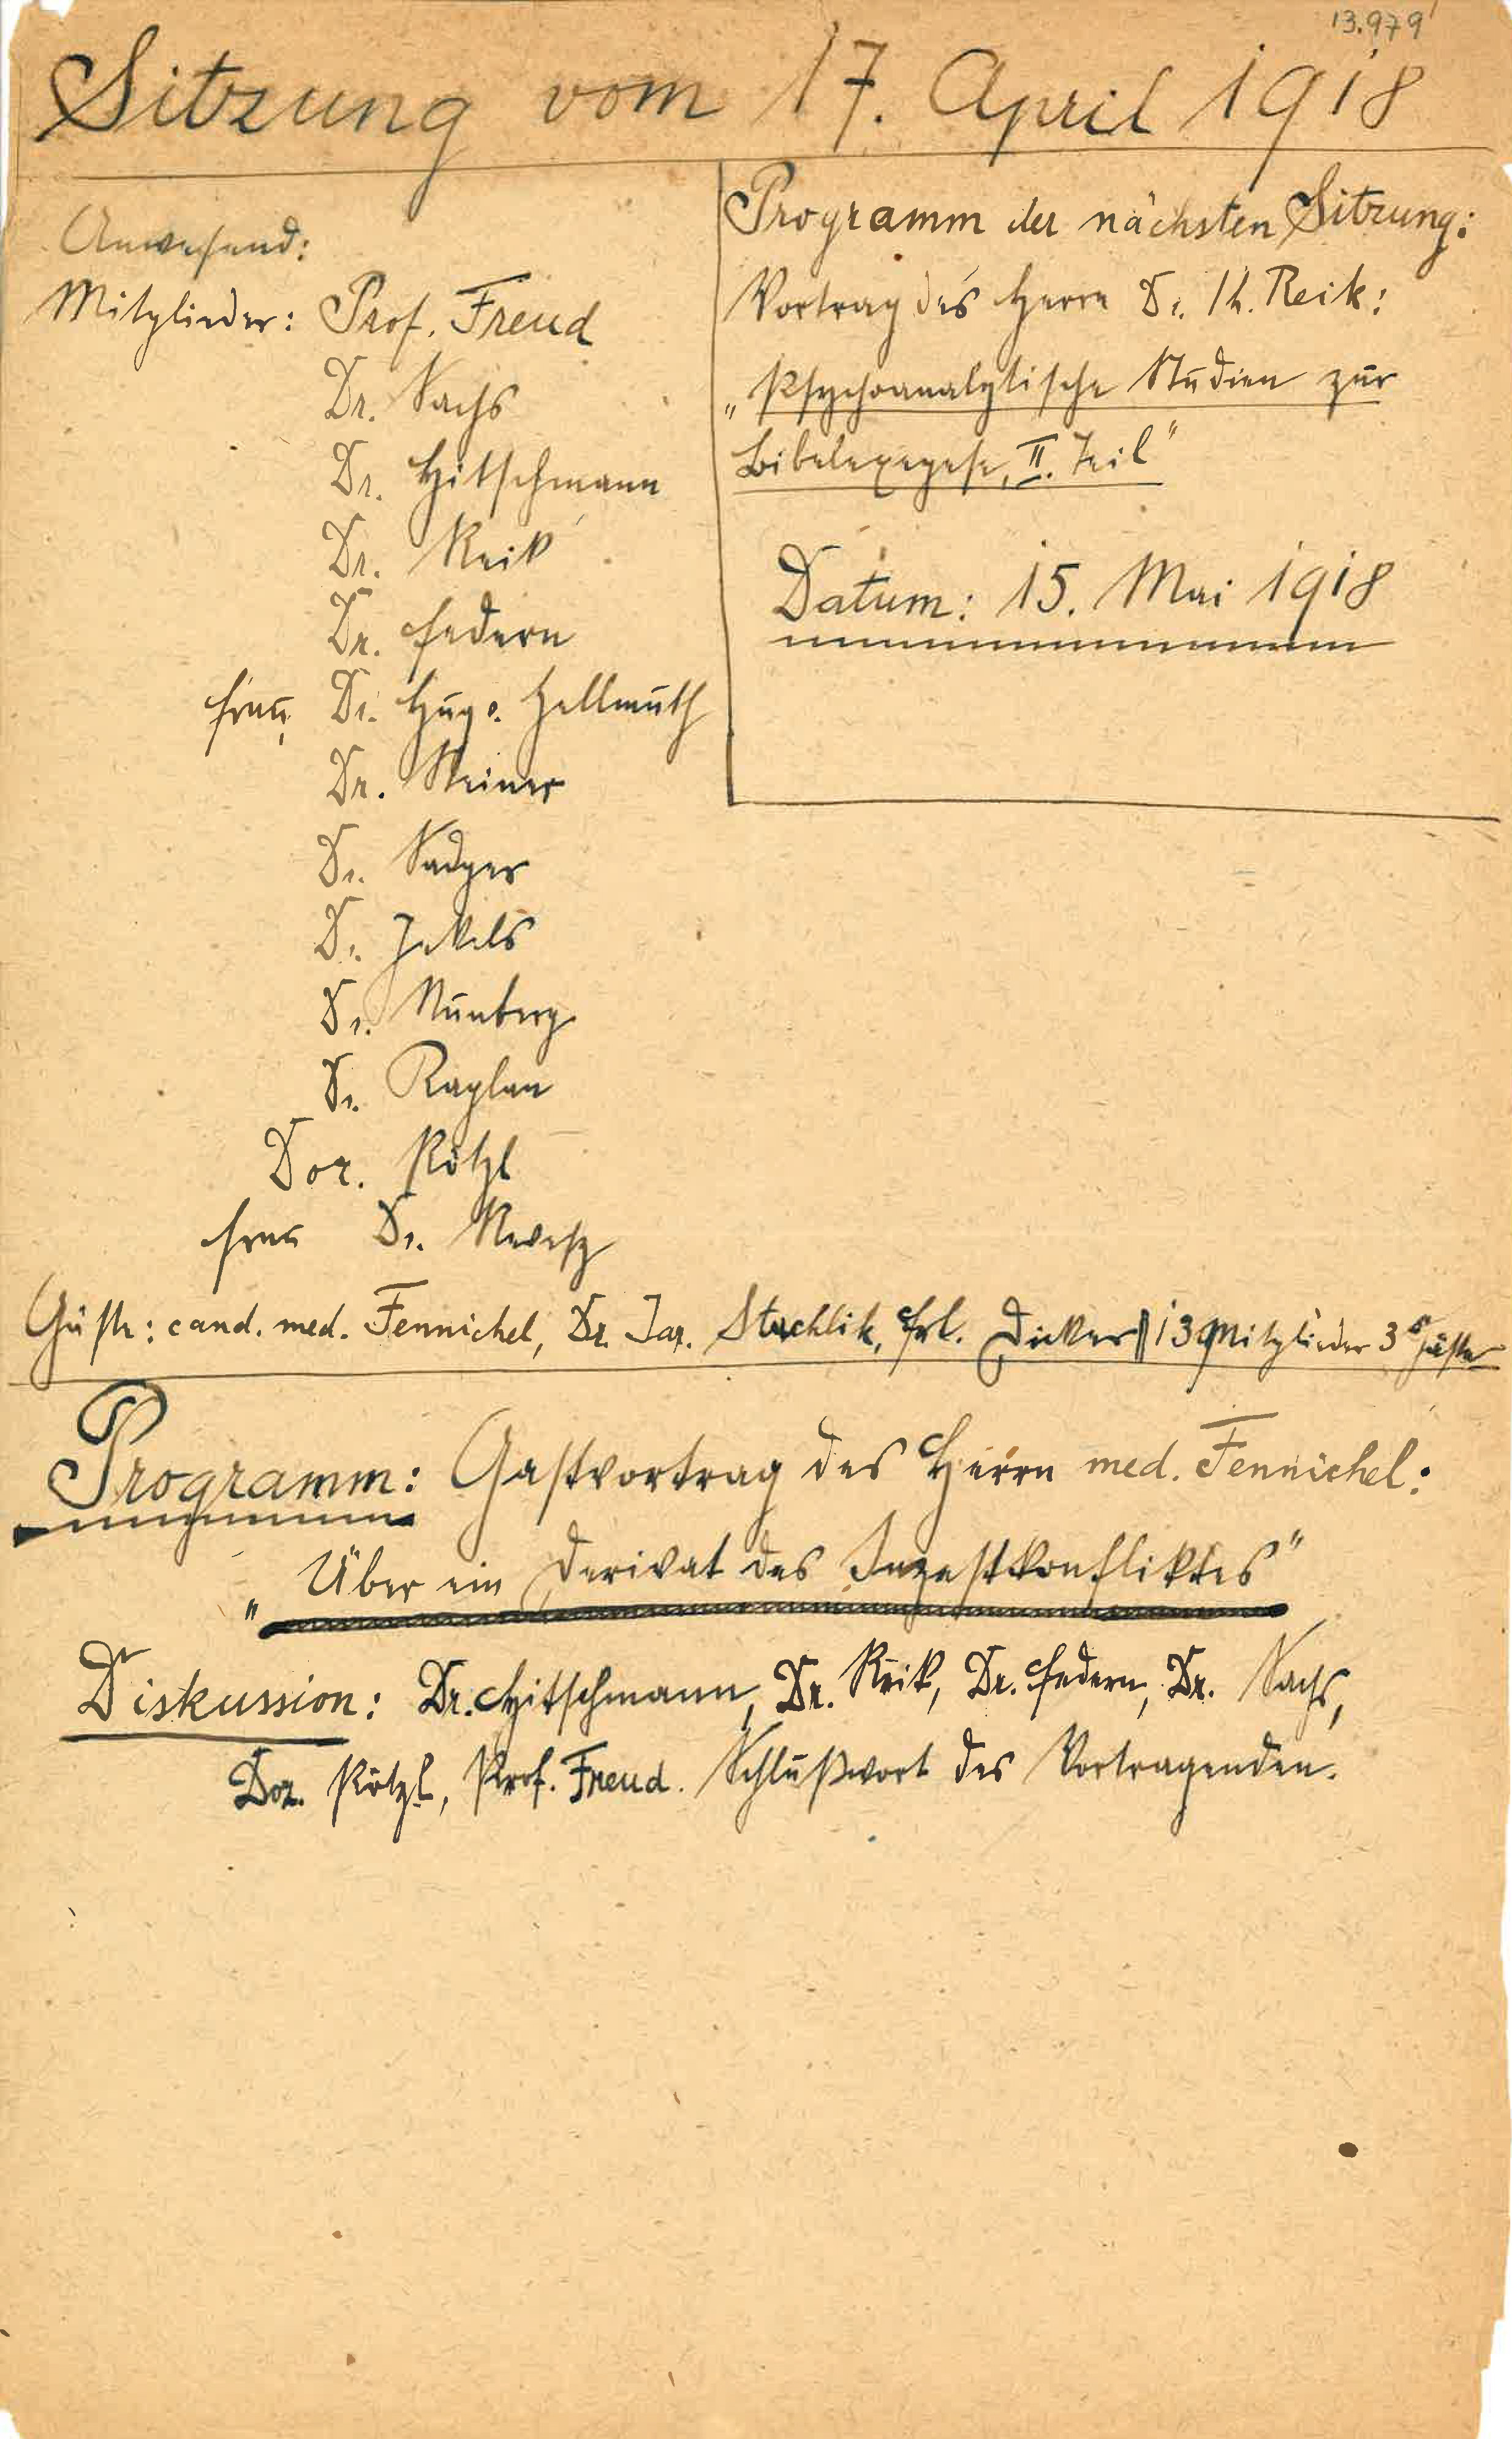 13.979
Sitzung vom 17. April 1918
Anwesend:
Mitglieder: Prof. Freud
Dr. Sachs
Dr. Hitschmann
Dr. Reik
Dr. Federn
Frau Dr. Hug v. Hellmuth
Dr. Steiner
Dr. Sadger
Dr. Jekels
Dr. Nunberg
Dr. Kaplan
Doz. Pötzl
Frau Dr. Revesz
Programm der nächsten Sitzung:
Vortrag des Herrn Dr. Th. Reik:
„Psychoanalytische Studien zur
Bibelexegese, II. Teil“
Datum: 15. Mai 1918
Gäste: cand. med. Fennichel, Dr. Jar. Stuchlik, Frl. Dicker || 13 Mitglieder 3 Gäste
Programm: Gastvortrag des Herrn med. Fennichel:
„Über ein Derivat des Inzestkonfliktes“
Diskussion: Dr. Hitschmann, Dr. Reik, Dr. Federn, Dr. Sachs,
Doz. Pötzl, Prof. Freud. Schlußwort des Vortragenden.